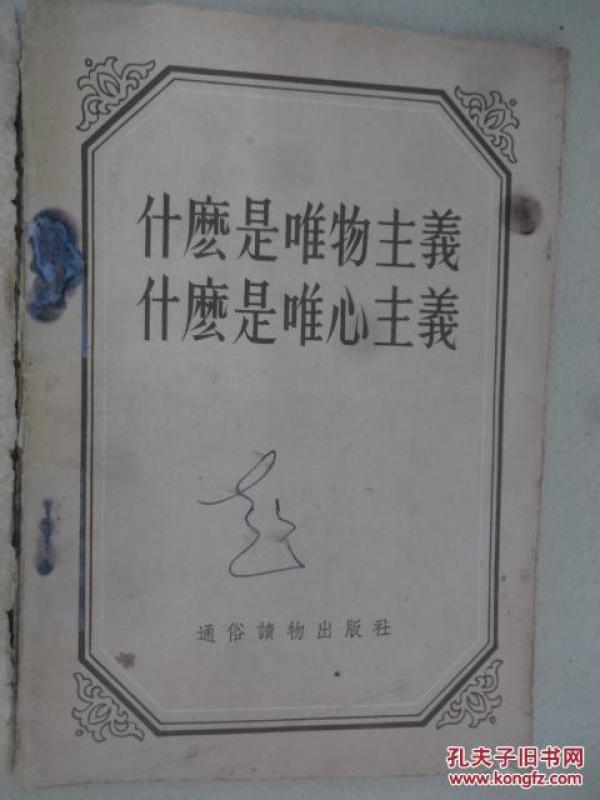 什麽是唯物主義
什麽是唯心主義
通俗讀物出版社
孔夫子旧书网
www.kongfz.com